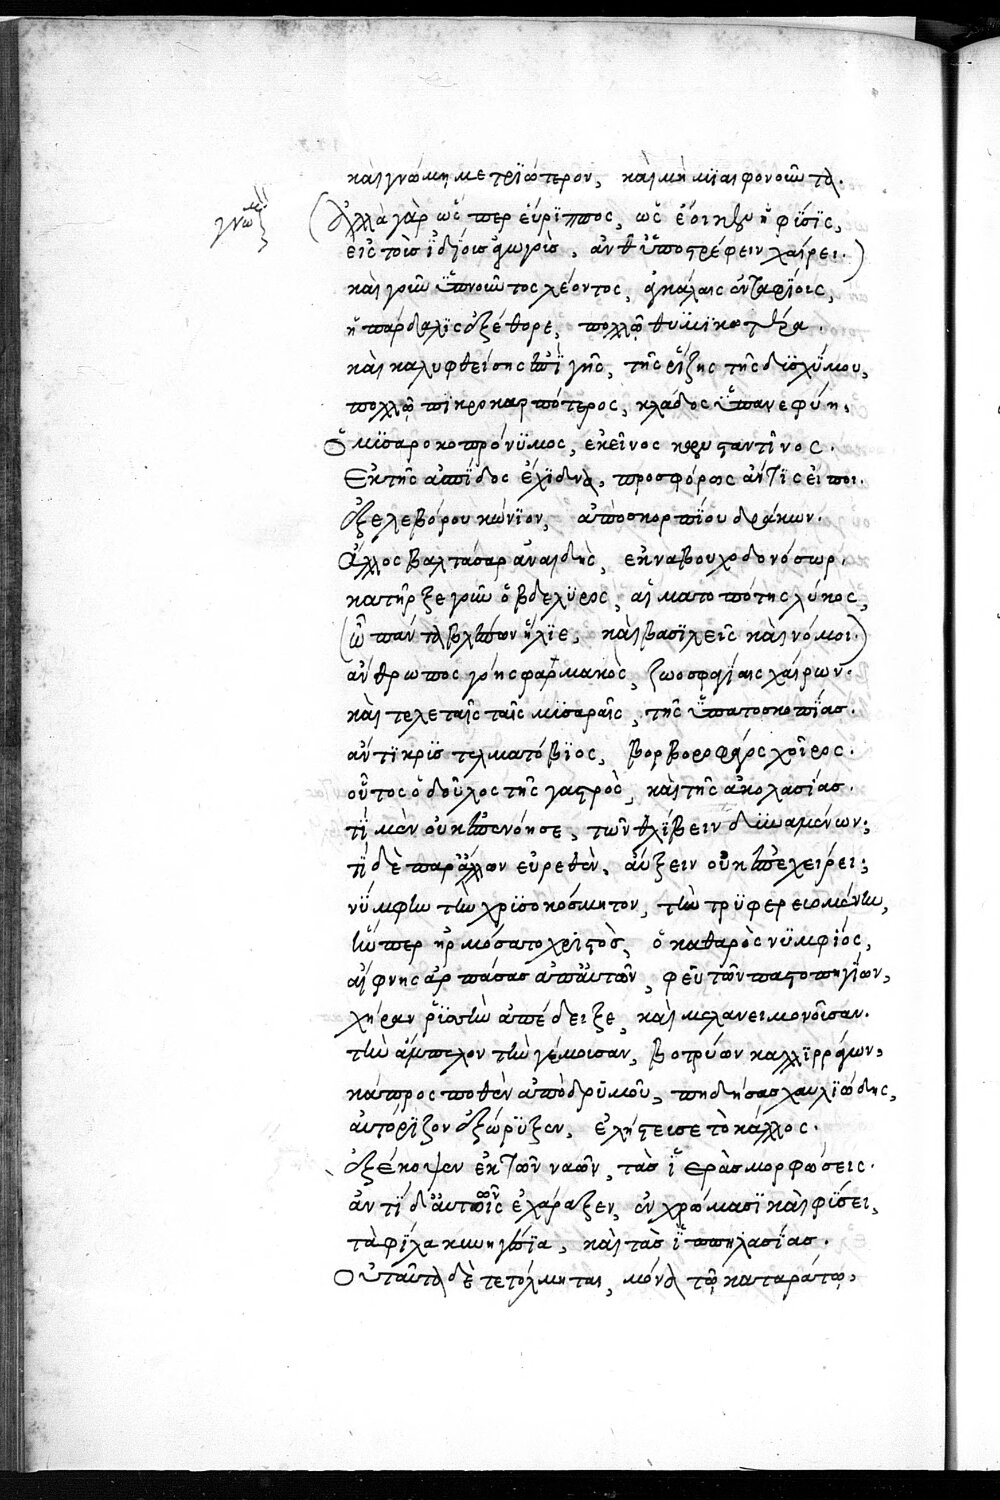 καὶ γνώμη μετριώτερον, καὶ μὴ μιαιφονοῦντα.
γνωμι
(Ἀλλὰ γὰρ ὥσπερ εὔριππος, ὡς ἔοικεν ἡ φύσις,
εἰς τοὺς ἰδίους φωρὶς, ἀνθυποστρέφειν χαίρει.)
καὶ γοῦν ὑπνοῦντος λέοντος, ἀγκάλαις ἐνταφίοις,
ἡ πάρδαλις ἐξέθορε, πολλῷ θυμικωτέρα.
καὶ καλυφθείσης ἐπὶ γῆς, τῆς ῥίζης τῆς δυσχύμου,
πολλῷ πικροκαρπότερος, κλάδος ὑπανεφύη.
ὁ μυσαροκοπρόνυμος, ἐκεῖνος κωνσταντῖνος.
Ἐκ τῆς ἀσπίδος ἔχιδνα, προσφόρως ἄν τις εἴποι.
ἐξ ἐλεβόρου κώνιον, ἀπὸ σκορπίου δράκων.
Ἄλλος βαλτάσαρ ἀναιδὴς, ἐκ ναβουχοδονόσωρ.
κατῆρξε γοῦν ὁ βδελυρος, αἱματοπότης λύκος,
(ὦ πάντα βλέπων ἥλιε, καὶ βασιλεῖς καὶ νόμοι.)
ἄνθρωπος γόης φαρμακὸς, ζωοσφαγίαις χαίρων.
καὶ τελεταῖς ταῖς μυσαραῖς, τῆς ὑπατοσκοπίας.
ἀντικρὺς τελματόβιος, βορβοροφάγος χοῖρος.
οὗτος ὁ δοῦλος τῆς γαστρὸς, καὶ τῆς ἀκολασίας.
τί μὲν οὐκ ἐπενόησε, τῶν θλίβειν δυναμένων;
τί δὲ παράλλον εὑρεθὲν, αὔξειν οὐκ ἐπεχείρει;
νύμφην τὴν χρυσοκόσμητον, τὴν τρυφερειομένην,
ἣν περ ἡρμόσατο χριστὸς, ὁ καθαρὸς νυμφίος,
αἴφνης ἁρπάσας ἀπ' αὐτῶν, φεῦ τῶν παστοπηγίων,
χήραν ῥυσὴν ἀπέδειξε, καὶ μελανειμονοῦσαν.
τὴν ἄμπελον τὴν γέμουσαν, βοτρύων καλλιρρόγων,
κάπρος ποθὲν ἀπὸ δρυμοῦ, πηδήσας χαυλιώδης,
αὐτόριζον ἐξώρυξεν, ἐλήστευσε τὸ κάλλος.
ἐξέκοψεν ἐκ τῶν ναῶν, τὰς ἱερὰς μορφώσεις.
ἀντὶ δ' αὐτῶν ἐχάραξεν, ἐν χρώμασι καὶ φύσει,
τὰ φίλα κυνηγέσια, καὶ τὰς ἱππηλασίας.
Οὐ ταῦτα δὲ τετόλμηται, μόνα τῷ καταράτῳ,